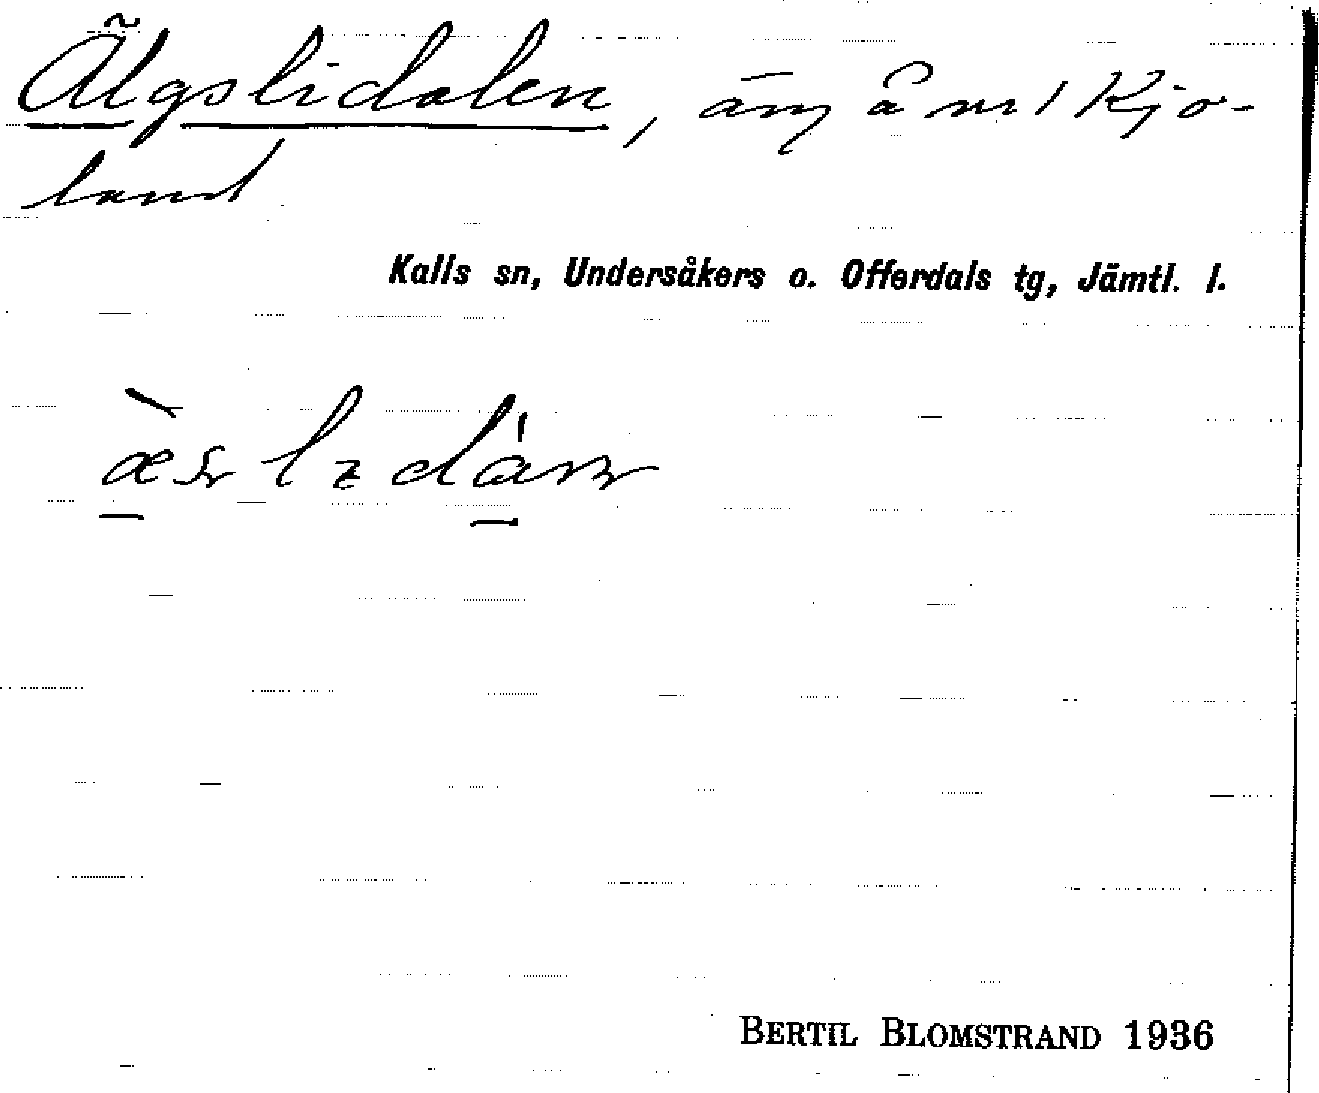 Älgslidalen, äng å nr 1 Kjo-
land
Kalls sn, Undersåkers o. Offerdals tg, Jämtl. l.
BERTIL BLOMSTRAND 1936